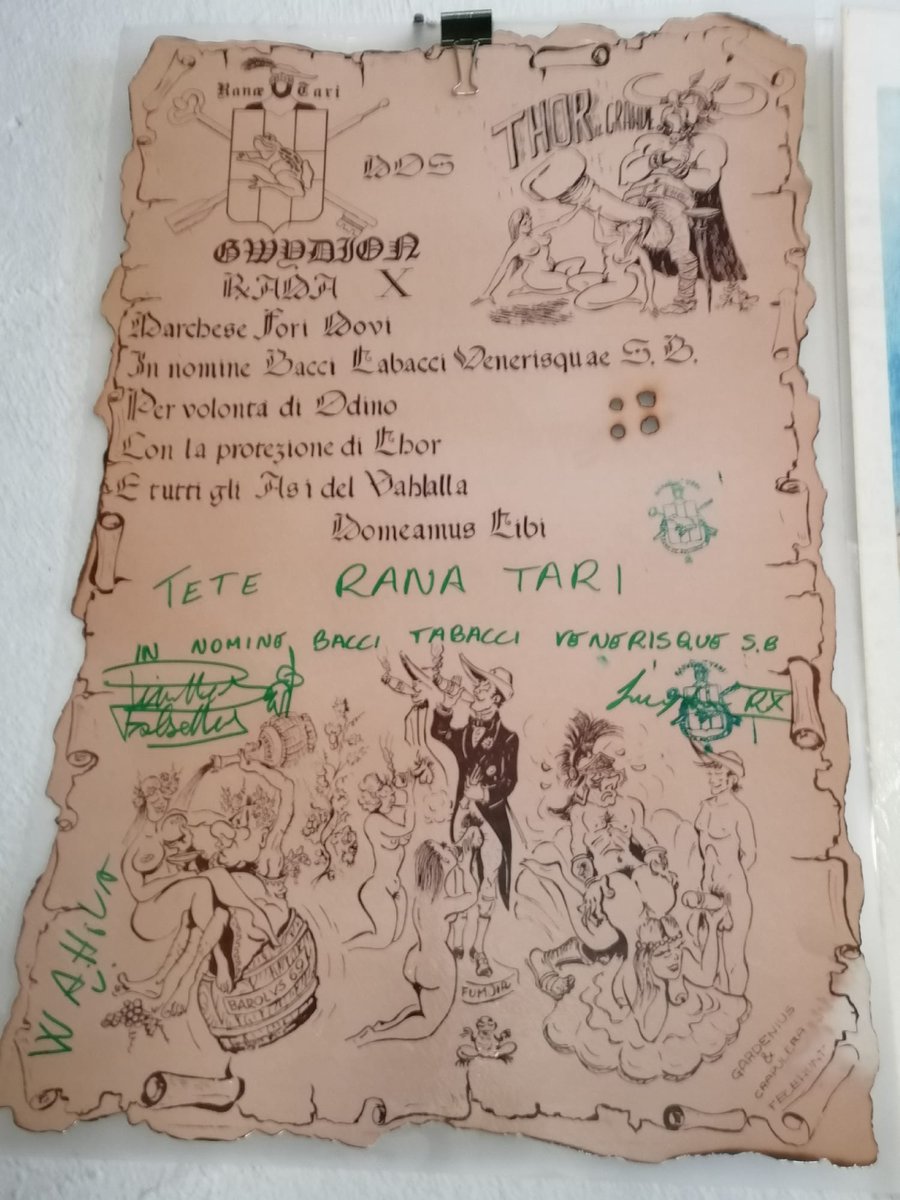 Ranæ Tari
THOR IL GRANDE
NOS
GWYDION
RADA X
Marchese Fori Novi
In nomine Bacci Tabacci Venerisquae S. B.
Per volontà di Odino
Con la protezione di Thor
E tutti gli Asi del Vahlalla
Nomeamus Tibi
TETE RANA TARI
IN NOMINE BACCI TABACCI VENERISQUE S.B
RX
W AtiLA
BAROLVS
FUMJIR
GARDENIUS
&
CRAPULERA